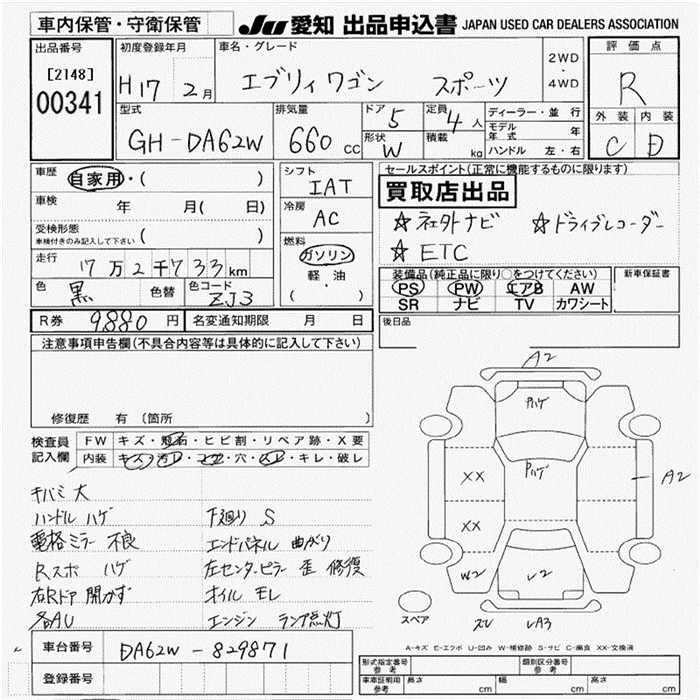 車内保管・守衛保管
JU 愛知 出品申込書 JAPAN USED CAR DEALERS ASSOCIATION
出品番号
[2148]
00341
初度登録年月
H17 2月
車名・グレード
エブリィワゴン スポーツ
2WD
・
4WD
評価点
R
外装 内装
C D
型式
GH-DA62W
排気量
660 cc
ドア 5
定員 4人
形状 W
積載 kg
ディーラー・並行
モデル年式 年
ハンドル 左・右
車歴 自家用・( )
車検 年 月( 日)
受検形態
車検付きのみ記入して下さい ( )
走行 17万2千733km
色 黒 色替 色コード ZJ3
シフト
IAT
冷房
AC
燃料
ガソリン
軽・油
( )
セールスポイント(正常に機能するものに限ります)
買取店出品
☆社外ナビ ☆ドライブレコーダー
☆ETC
装備品(純正品に限り○をつけてください)
PS PW エアB AW
SR ナビ TV カワシート
新車保証書
後日品
R券 9880円 名変通知期限 月 日
注意事項申告欄(不具合内容等は具体的に記入して下さい)
修復歴 有 (箇所
検査員
記入欄
FW キズ・飛石・ヒビ割・リペア跡・X要
内装 キズ・汚レ・コゲ・穴・スレ・キレ・破レ
キバミ 大
ハンドル ハゲ
電格ミラー 不良
Rスポ ハゲ
右Rドア 開かず
各AU
下廻り S
エンドパネル 曲がり
左センタピラー 歪 修復
オイル モレ
エンジン ランプ点灯
A2
ハゲ
ハゲ
A2
XX
XX
W2
L2
スペア
LA3
A-キズ E-エクボ U-凹み W-補修跡 S-サビ C-腐食 XX-交換済
車台番号 DA62W-829871
登録番号
形式指定番号
参考
類別区分番号
参考
車庫証明用
参考
長さ cm 幅 cm 高さ cm